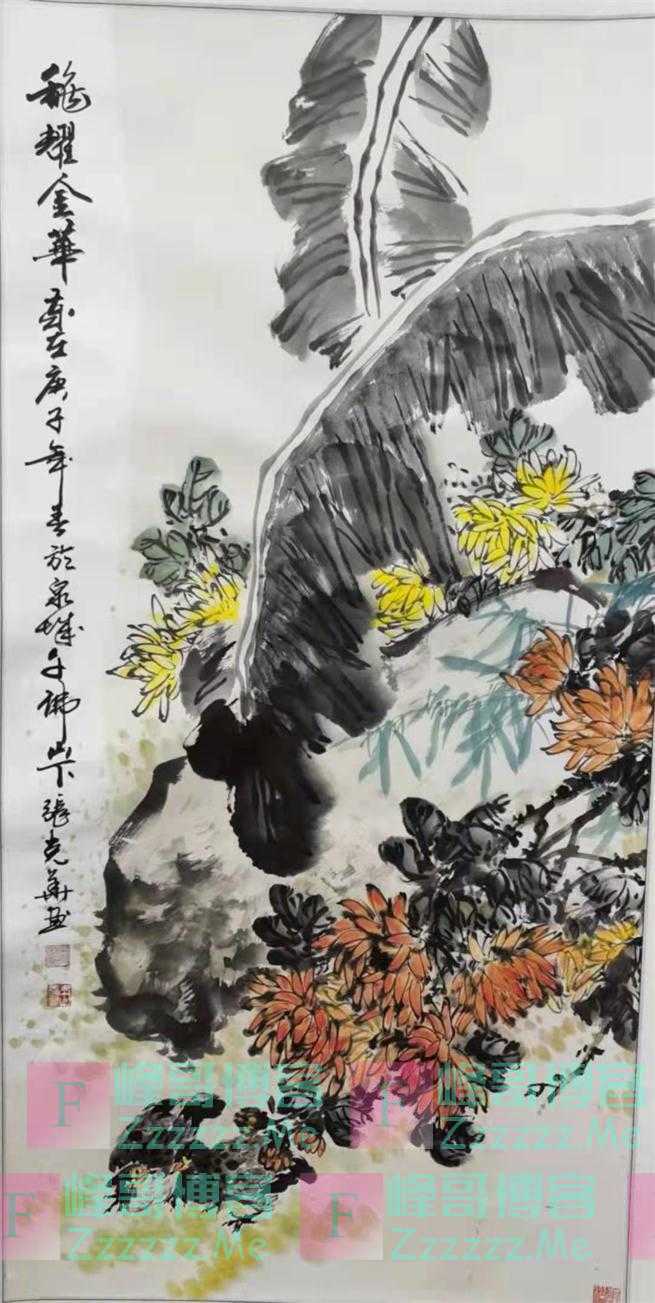 穐耀金華 歲在庚子年春於泉城千佛山下 張克華畫
F 峰哥博客 F 峰哥博客
Zzzzzz.Me Zzzzzz.Me
F 峰哥博客 F 峰哥博客
Zzzzzz.Me Zzzzzz.Me